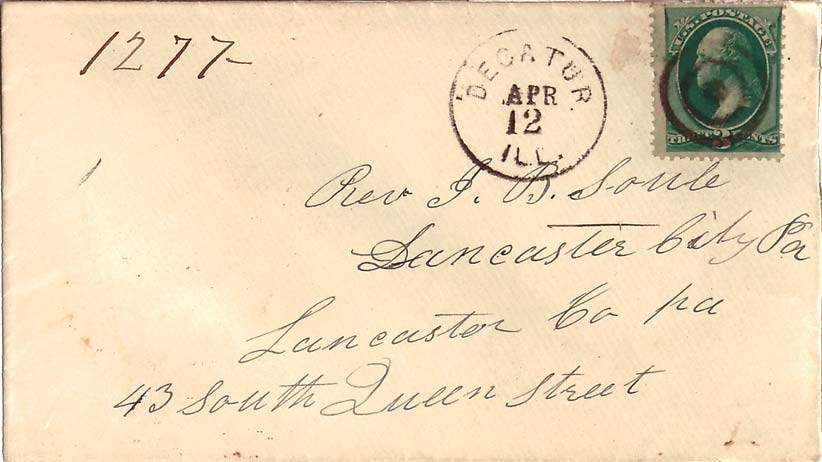 1277-
DECATUR
APR
12
ILL.
U.S. POSTAGE
THREE 3 CENTS
Rev J. B. Soule
Lancaster City Pa
Lancaster Co pa
43 South Queen Street